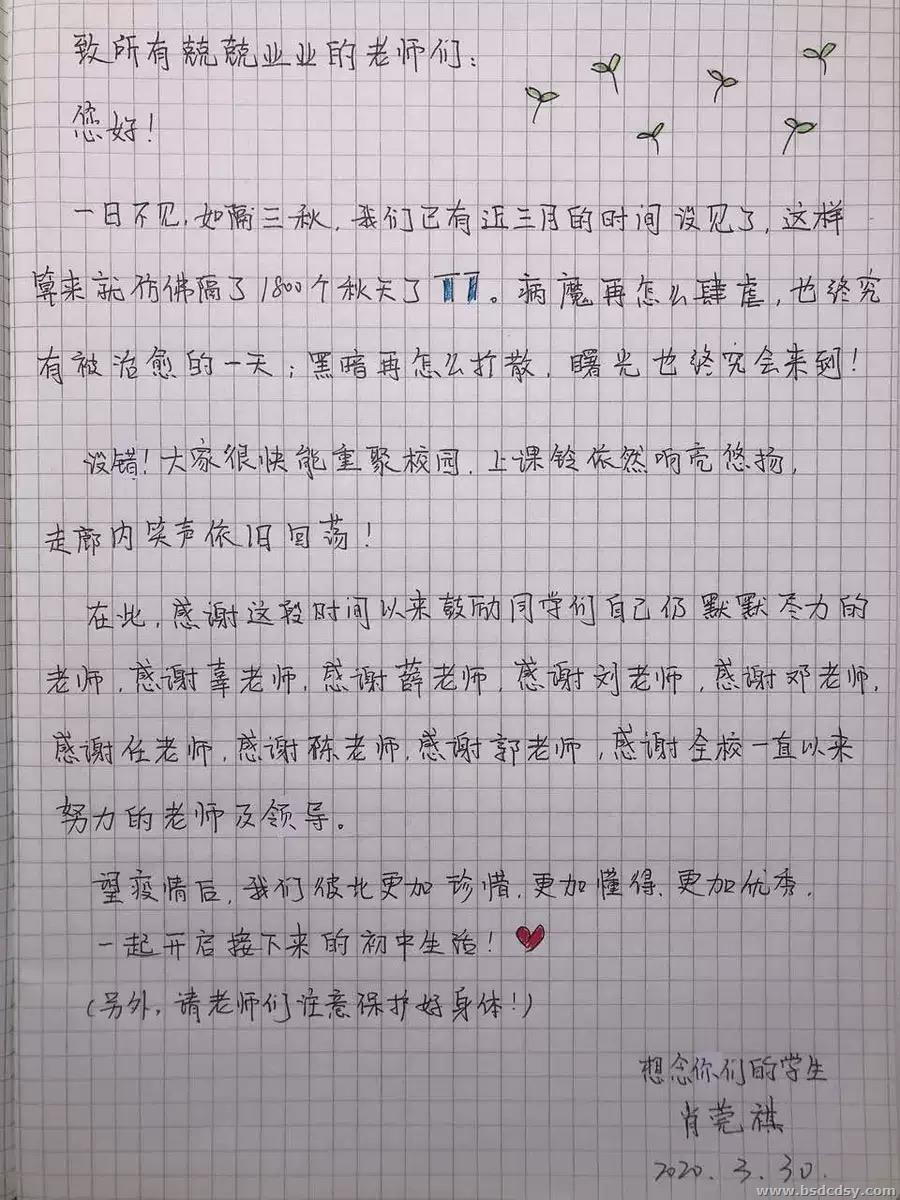 致所有兢兢业业的老师们：
您好！
一日不见，如隔三秋，我们已有近三月的时间没见了，这样
算来就仿佛隔了1800个秋天了。病魔再怎么肆虐，也终究
有被治愈的一天；黑暗再怎么扩散，曙光也终究会来到！
没错！大家很快能重聚校园，上课铃依然响亮悠扬，
走廊内笑声依旧回荡！
在此，感谢这段时间以来鼓励同学们自己仍默默尽力的
老师，感谢辜老师，感谢薛老师，感谢刘老师，感谢邓老师，
感谢任老师，感谢陈老师，感谢郭老师，感谢全校一直以来
努力的老师及领导。
望疫情后，我们彼此更加珍惜，更加懂得，更加优秀，
一起开启接下来的初中生活！
（另外，请老师们注意保护好身体！）
想念你们的学生
肖莞祺
2020.3.30.
www.bsdcdsy.com